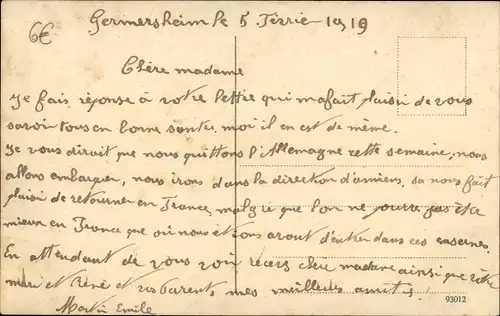 6€
Germersheim le 5 Févrié 1919
Chère madame
Je fais réponse à votre lettre qui ma fait plaisi de vous
savoir tous en bonne santée, moi il en est de même.
Je vous dirait que nous quittons l'Allemagne cette semaine, nous
allons embarquer, nous irons dans la direction d'amiens, sa nous fait
plaisi de retourner en France, malgre que l'on ne pourra pas être
mieux en France que où nous étions avant d'entrer dans ces casernes.
En attendant de vous voir recevez chère madame ainsi que votre
mari et René et vos parents mes meilleurs amitiés.
Martin Emile
93012